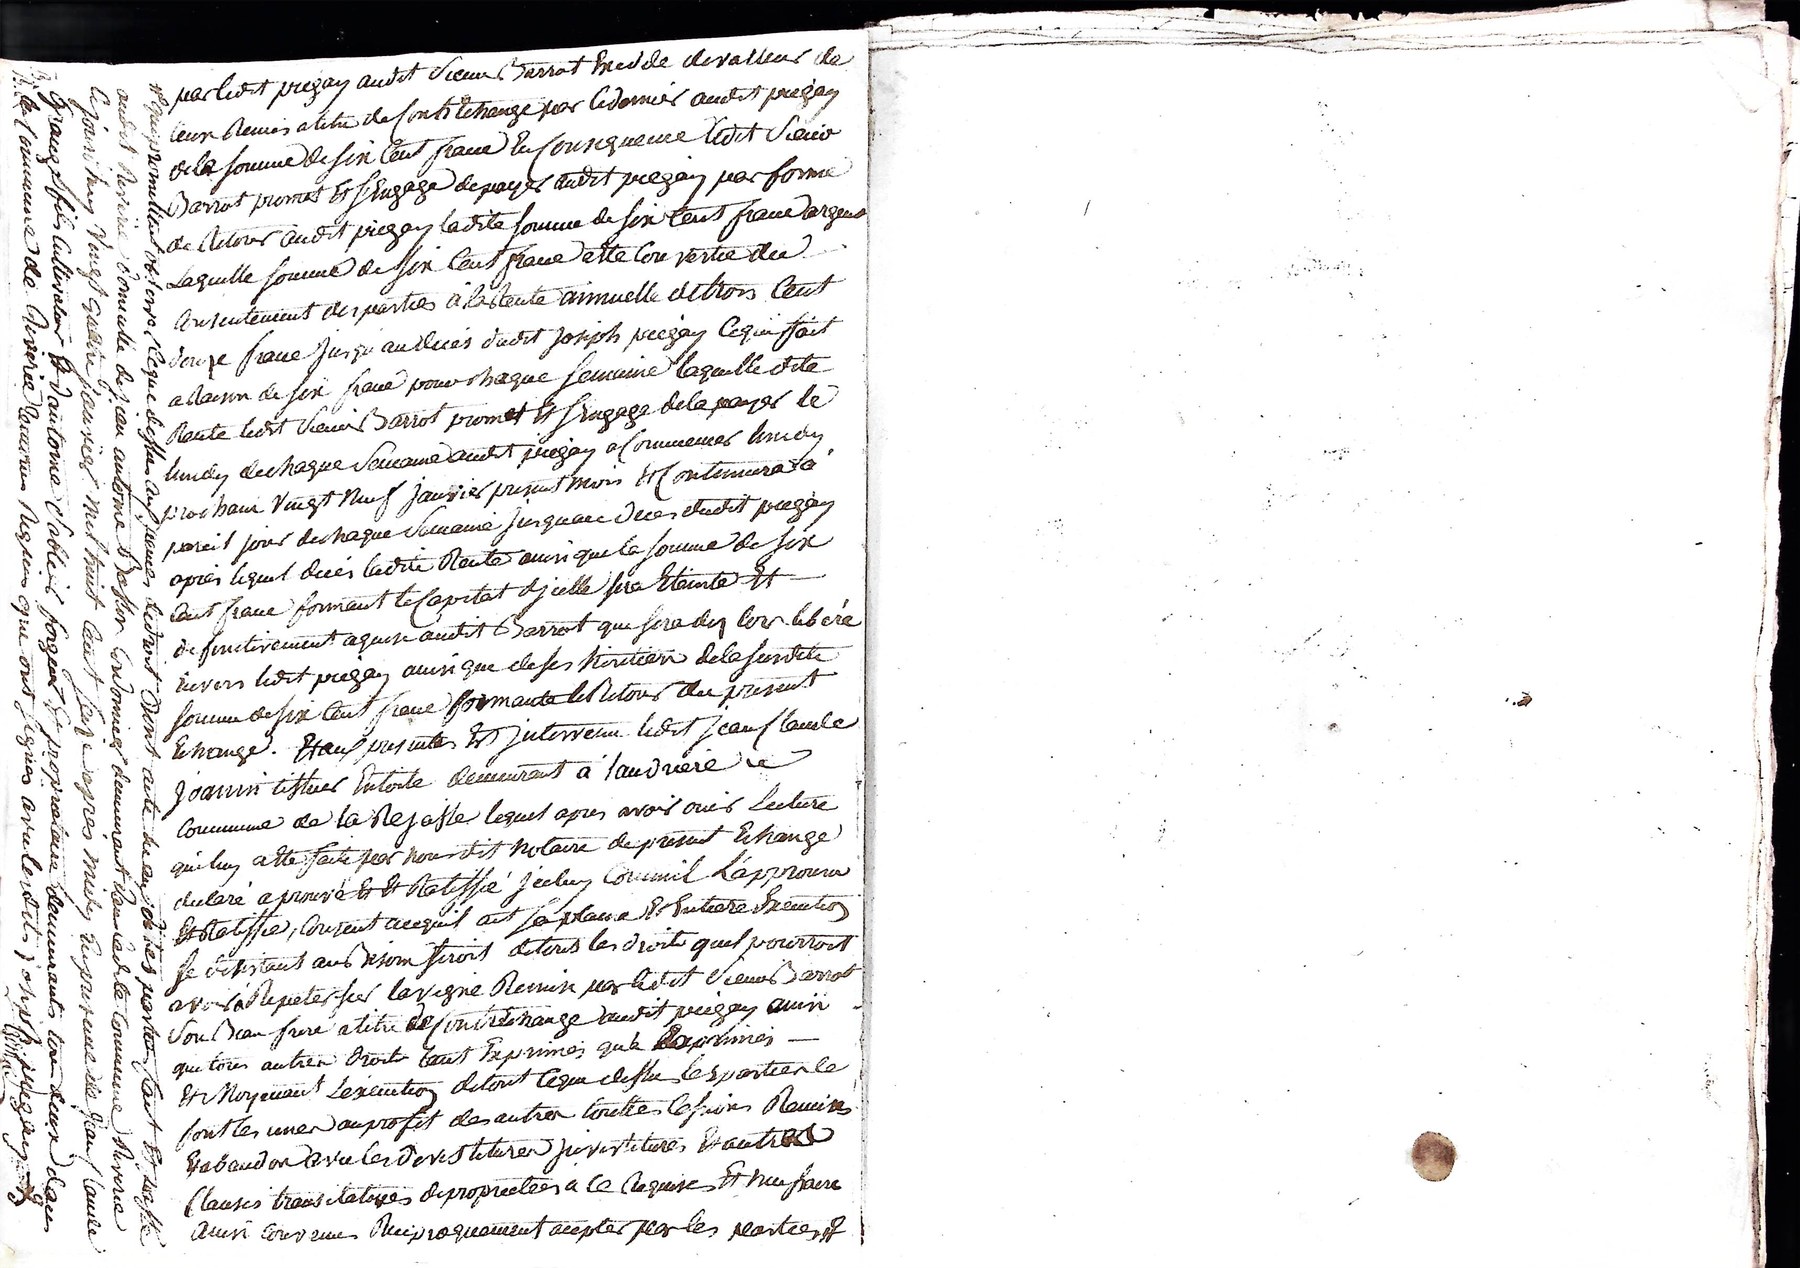 par ledit piegay audit Sieur Barrot Excede devalleur de
ceux Remis a titre de Contréchange par Cedernier audit piegay
dela somme de six Cent franc En Consequence ledit Sieur
Barrot promet Et s'Engage de payer audit piegay par forme
de Retour audit piegay ladite somme de six Cent franc argent
Laquelle somme de six Cent franc a été Convertie du
Consentement des parties à la Rente annuelle de trois Cent
douze franc jusqu'au décès dudit Joseph piegay Cequi fait
a Raison de six franc pour chaque semaine laquelle dite
Rente ledit Sieur Barrot promet Et s'Engage dela payer le
lundy de chaque Semaine audit piegay a Commencer lundy
prochain Vingt Neuf janvier present mois Et Continuera à
pareil jour de chaque Semaine jusqu'au deces dudit piegay
après lequel décès ladite Rente ainsi que la somme de six
Cent franc formant le Capital d'jcelle sera Eteinte Et
definitivement aquise audit Barrot que sera des lors libéré
Envers ledit piegay ainsi que de ses héritiers dela susdite
somme de six Cent franc formante le Retour du present
Echange. Et aux presentes Est jntervenu ledit jean Claude
joanin tissier En toile demeurant à laudriere
Commune de la Rejasse lequel apres avoir ouir Lecture
qui luy a été faite par nous dit Notaire du present Echange
declaré aprouvé Et Et Ratiffié jceluy Comme il L'approuve
Et Ratiffie, Consent acequil ait sa pleine Et Entiere Execution
se desistant au Besoin seroit de tous les droits quel pourroit
avoir à Repeter sur la vigne Remise par ledit Sieur Barrot
Son Beau frere a titre de Contréchange audit piegay ainsi
que tous autres droits tant Exprimés que
Et Moyenant L'exécution de tout Ceque dessus les parties se
font les unes au profit des autres toutes Cessions Remises
Et abandon avec les devestitures jnvestitures Et autres
Clauses translatives de proprietees à Ce Requises Et
Ainsi Convenus Reciproquement acepter par les parties Et
qui promettent observer Ceque dessus aux peines de droit Dont acte aux dites parties fait Et passé
audit Riverie domicile de jean antoine Baston Cordonnier demeurant dans ladite Commune Riverie
Cejourd'huy Vingt quatre janvier Mil huit Cent Seize apres midy En presence de jean Claude
Grange fils Cultivateur Et d'antoine forgeur Et proprietaire demeurants tous deux dans
la Commune de Riverie temoins Requis que ont signés avec lesdits joseph piegay